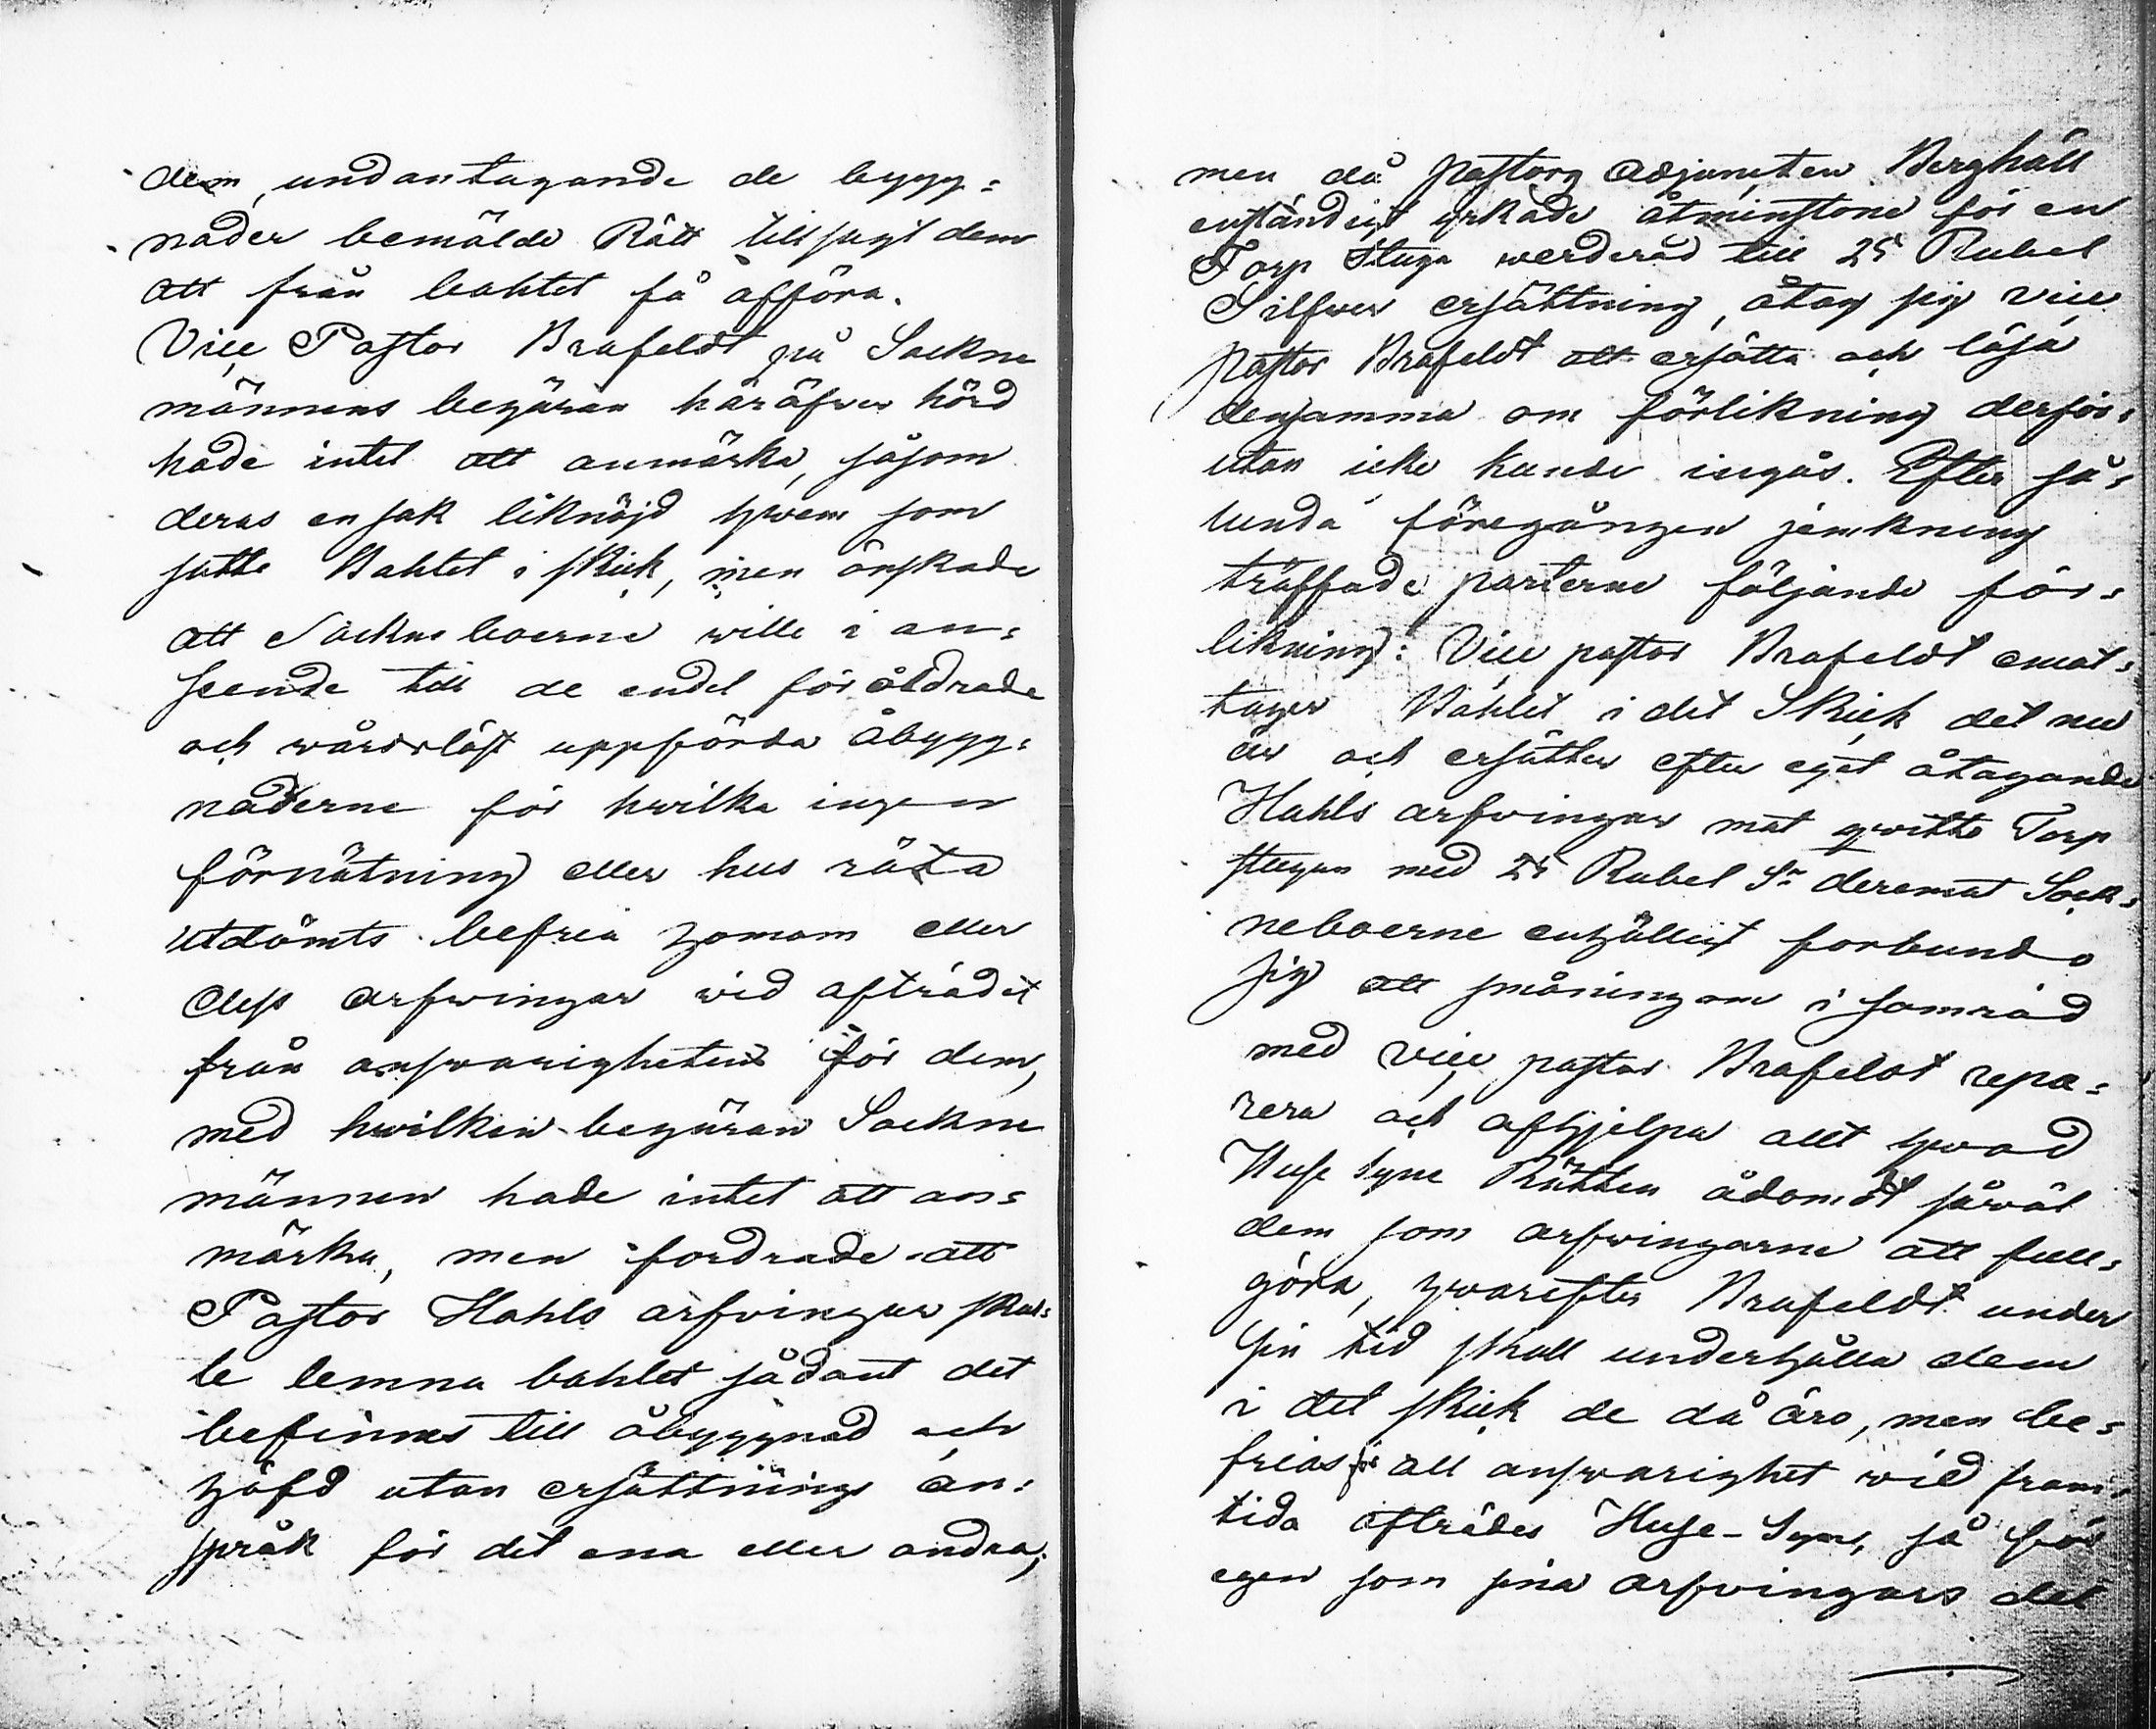 dem, undantagande de bygg=
nader bemälde Rätt tillsagt dem
att från bohlet få afföra.
Vice Pastor Brafeldt på Sockne
männens begäran häröfver hörd
hade intet att anmärka, såsom
deras ensak liknöjd hwem som
satte Bohlet i skick, men önskade
att Sockneboerne wille i an=
seende till de endel för åldrade
och wårdslöst uppförda åbygg=
naderne för hwilka ingen
förnötning eller hus röta
utdömts befria honom eller
dess arfwingar wid afträdet
från answarigheten för dem,
med hwilken begäran Sockne
männen hade intet att an=
märka, men fordrade att
Pastor Hahls arfvingar skul=
le lemna bohlet sådant det
befinnes till åbyggnad och
häfd utan ersättnings an=
språk för det ena eller andra;
men då pastors adjuncten Berghäll
enständigt yrkade åtminstone för en
Torp Stuga werderad till 25 Rubel
Silfwer ersättning, åtog sig vice
pastor Brafeldt att ersätta och lösa
densamma om förlikning derför=
utan icke kunde ingås. Efter så=
lunda föregången jemkning
träffade parterne följande för=
likning: Vice pastor Brafeldt emot=
tager Bohlet i det Skick det nu
är och ersätter efter eget åtagande
Hahls arfvingar mot qwitto Torp
stugan med 25 Rubel Sr deremot Sock=
neboerne enhälligt forbundo
sig att småningom i samråd
med vice pastor Brafeldt repa=
rera och afhjelpa allt hwad
Huse Syne Rätten ådömdt såwäl
dem som arfwingarne att full=
göra, hwarefter Brafeldt under
sin tid skall underhålla dem
i det skick de då äro, men be=
frias för all answarighet wid fram=
tida afträdes Huse-Syn, så för
egen som sina arfvingars del